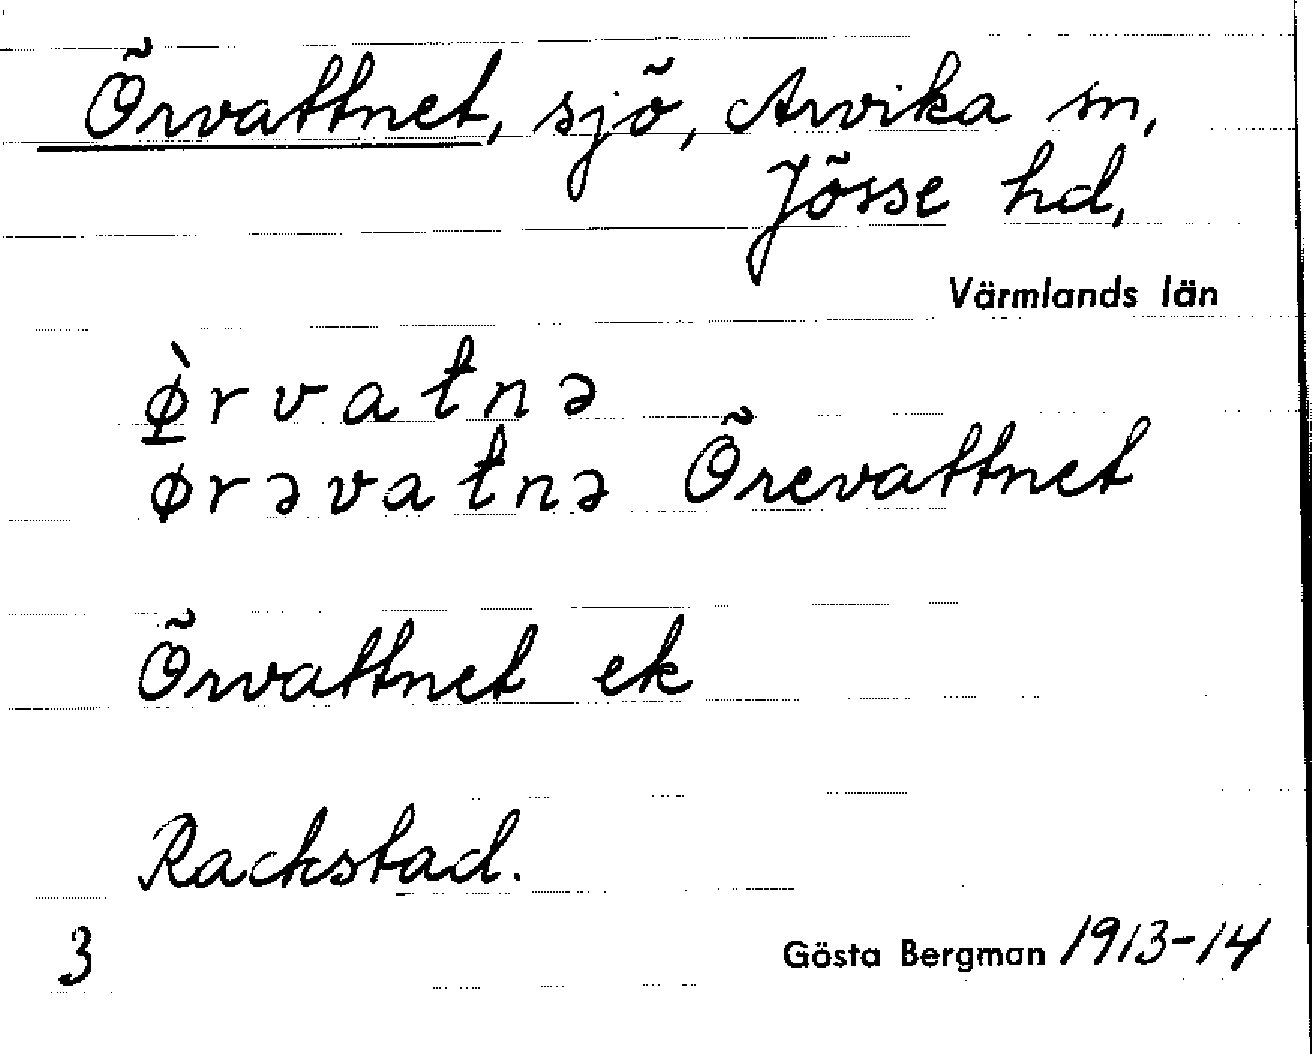 Örvattnet, sjö, Arvika sn,
Jösse hd,
Värmlands län
ø̠̀rvatnə
ørəvatnə Örevattnet
Örvattnet ek
Rackstad.
3 Gösta Bergman 1913-14